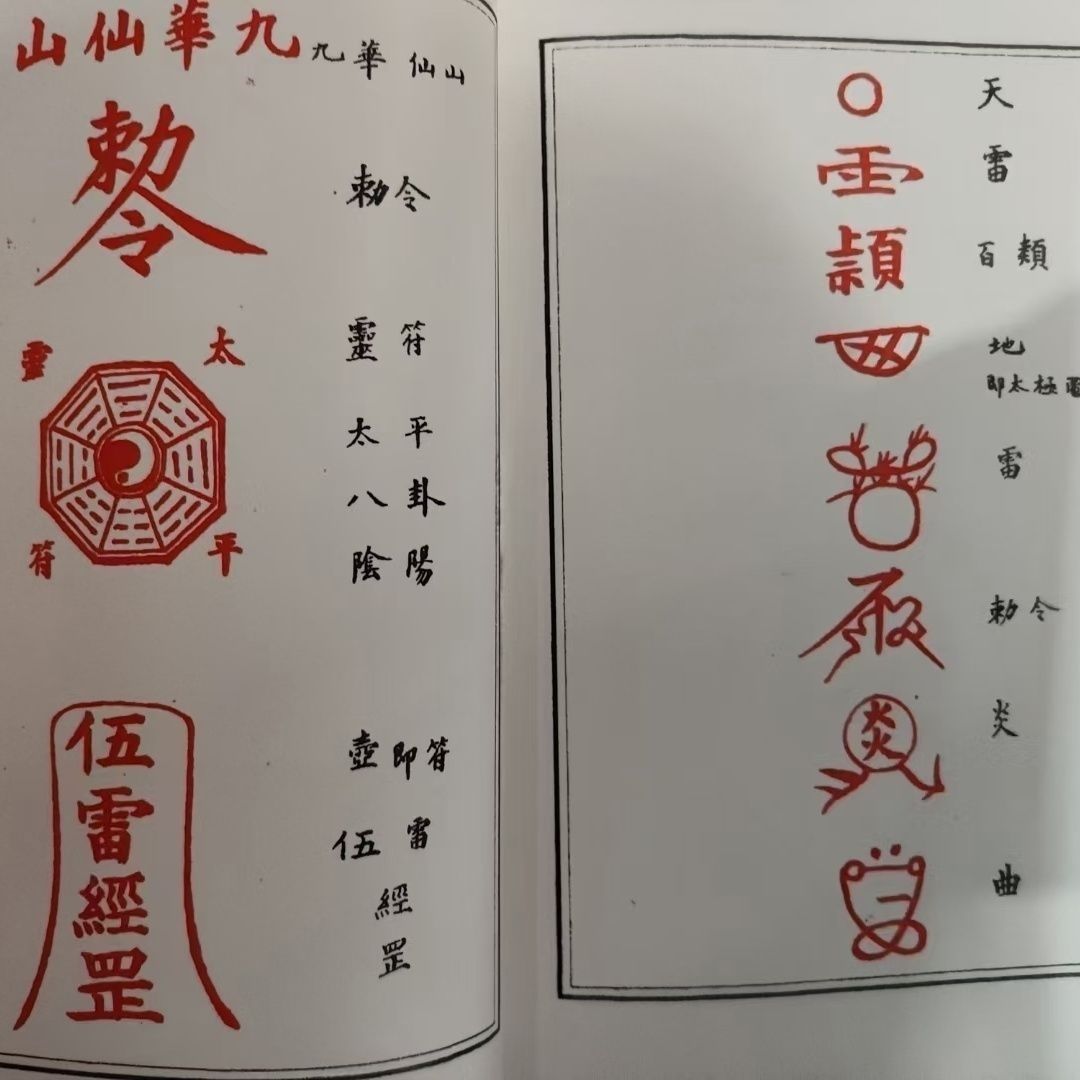 九華仙山
九華仙山
勅令
勅令
靈符
太平
八卦
陰陽
靈
太
符
平
壺即符
伍雷
經
罡
伍
雷
經
罡
天
雷
百類
地
即太極
雷
勅令
炎
炎
曲